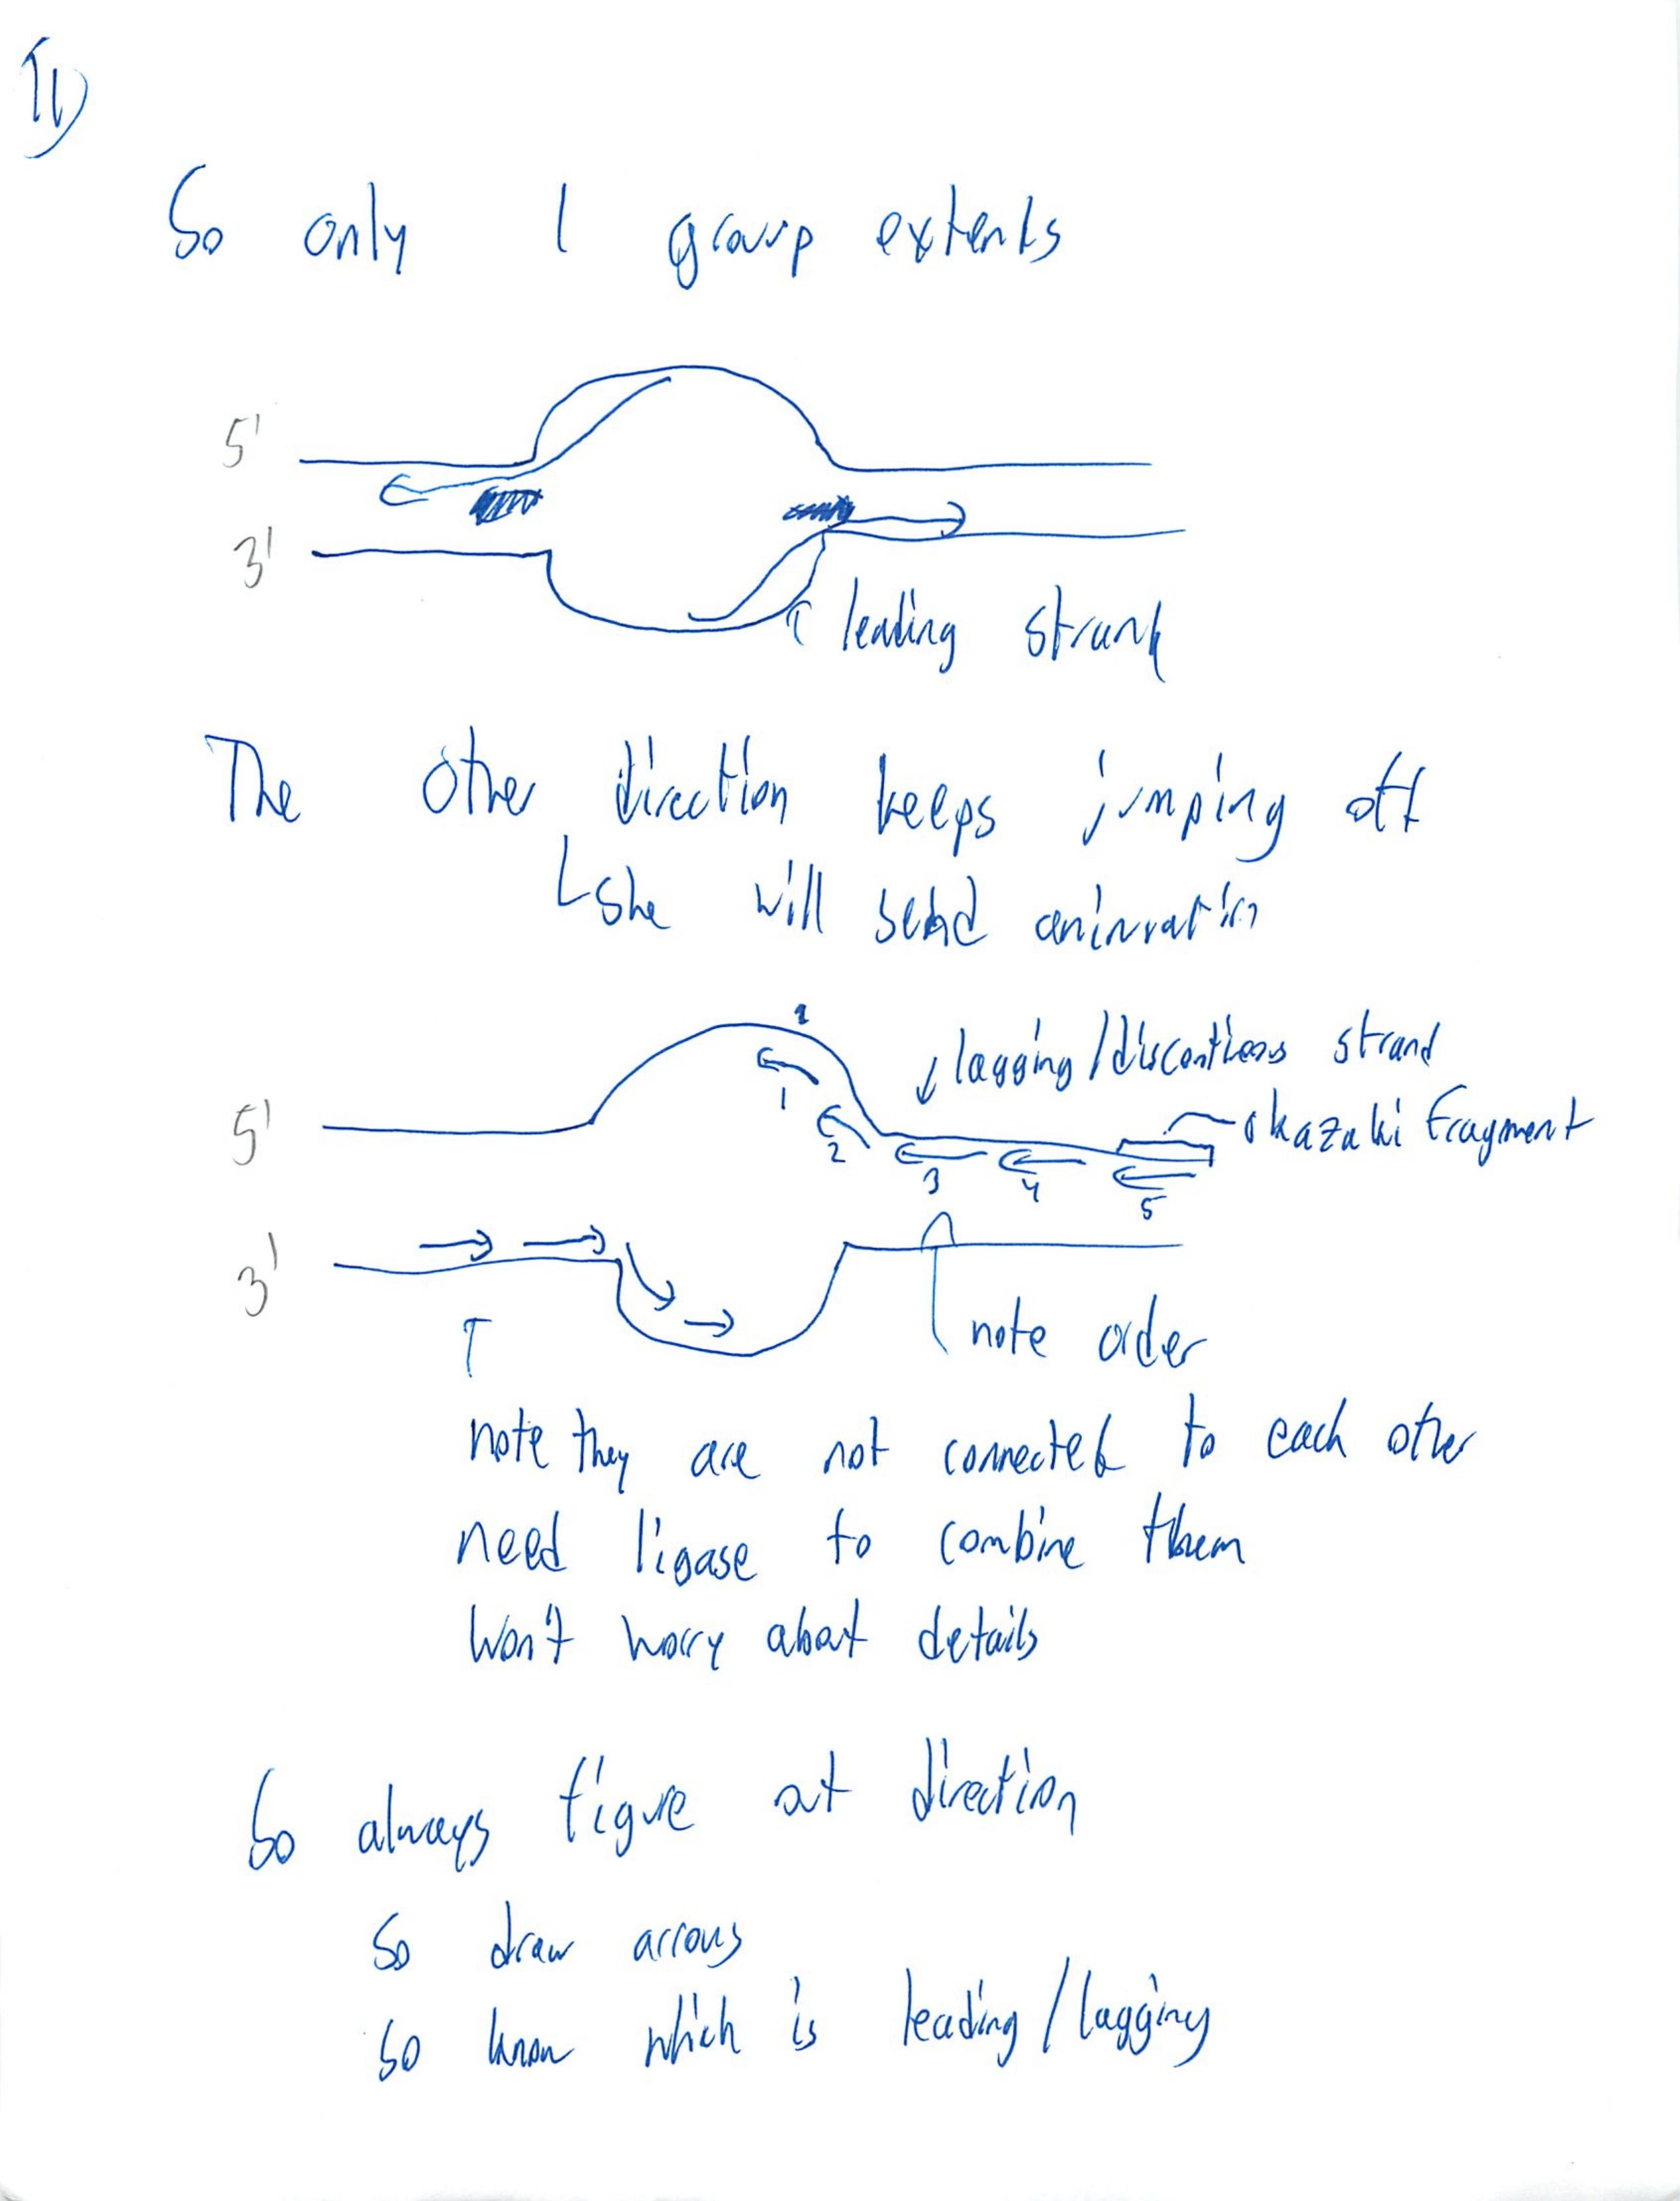 11)
So only 1 group extends
5'
3'
leading strand
The other direction keeps jumping off
she will send
1
lagging/discontinous strand
Okazaki fragment
5'
1
2
3
4
5
3'
note order
note they are not connected to each other
need ligase to combine them
Won't worry about details
So always figure out direction
So draw arrows
So know which is leading/lagging